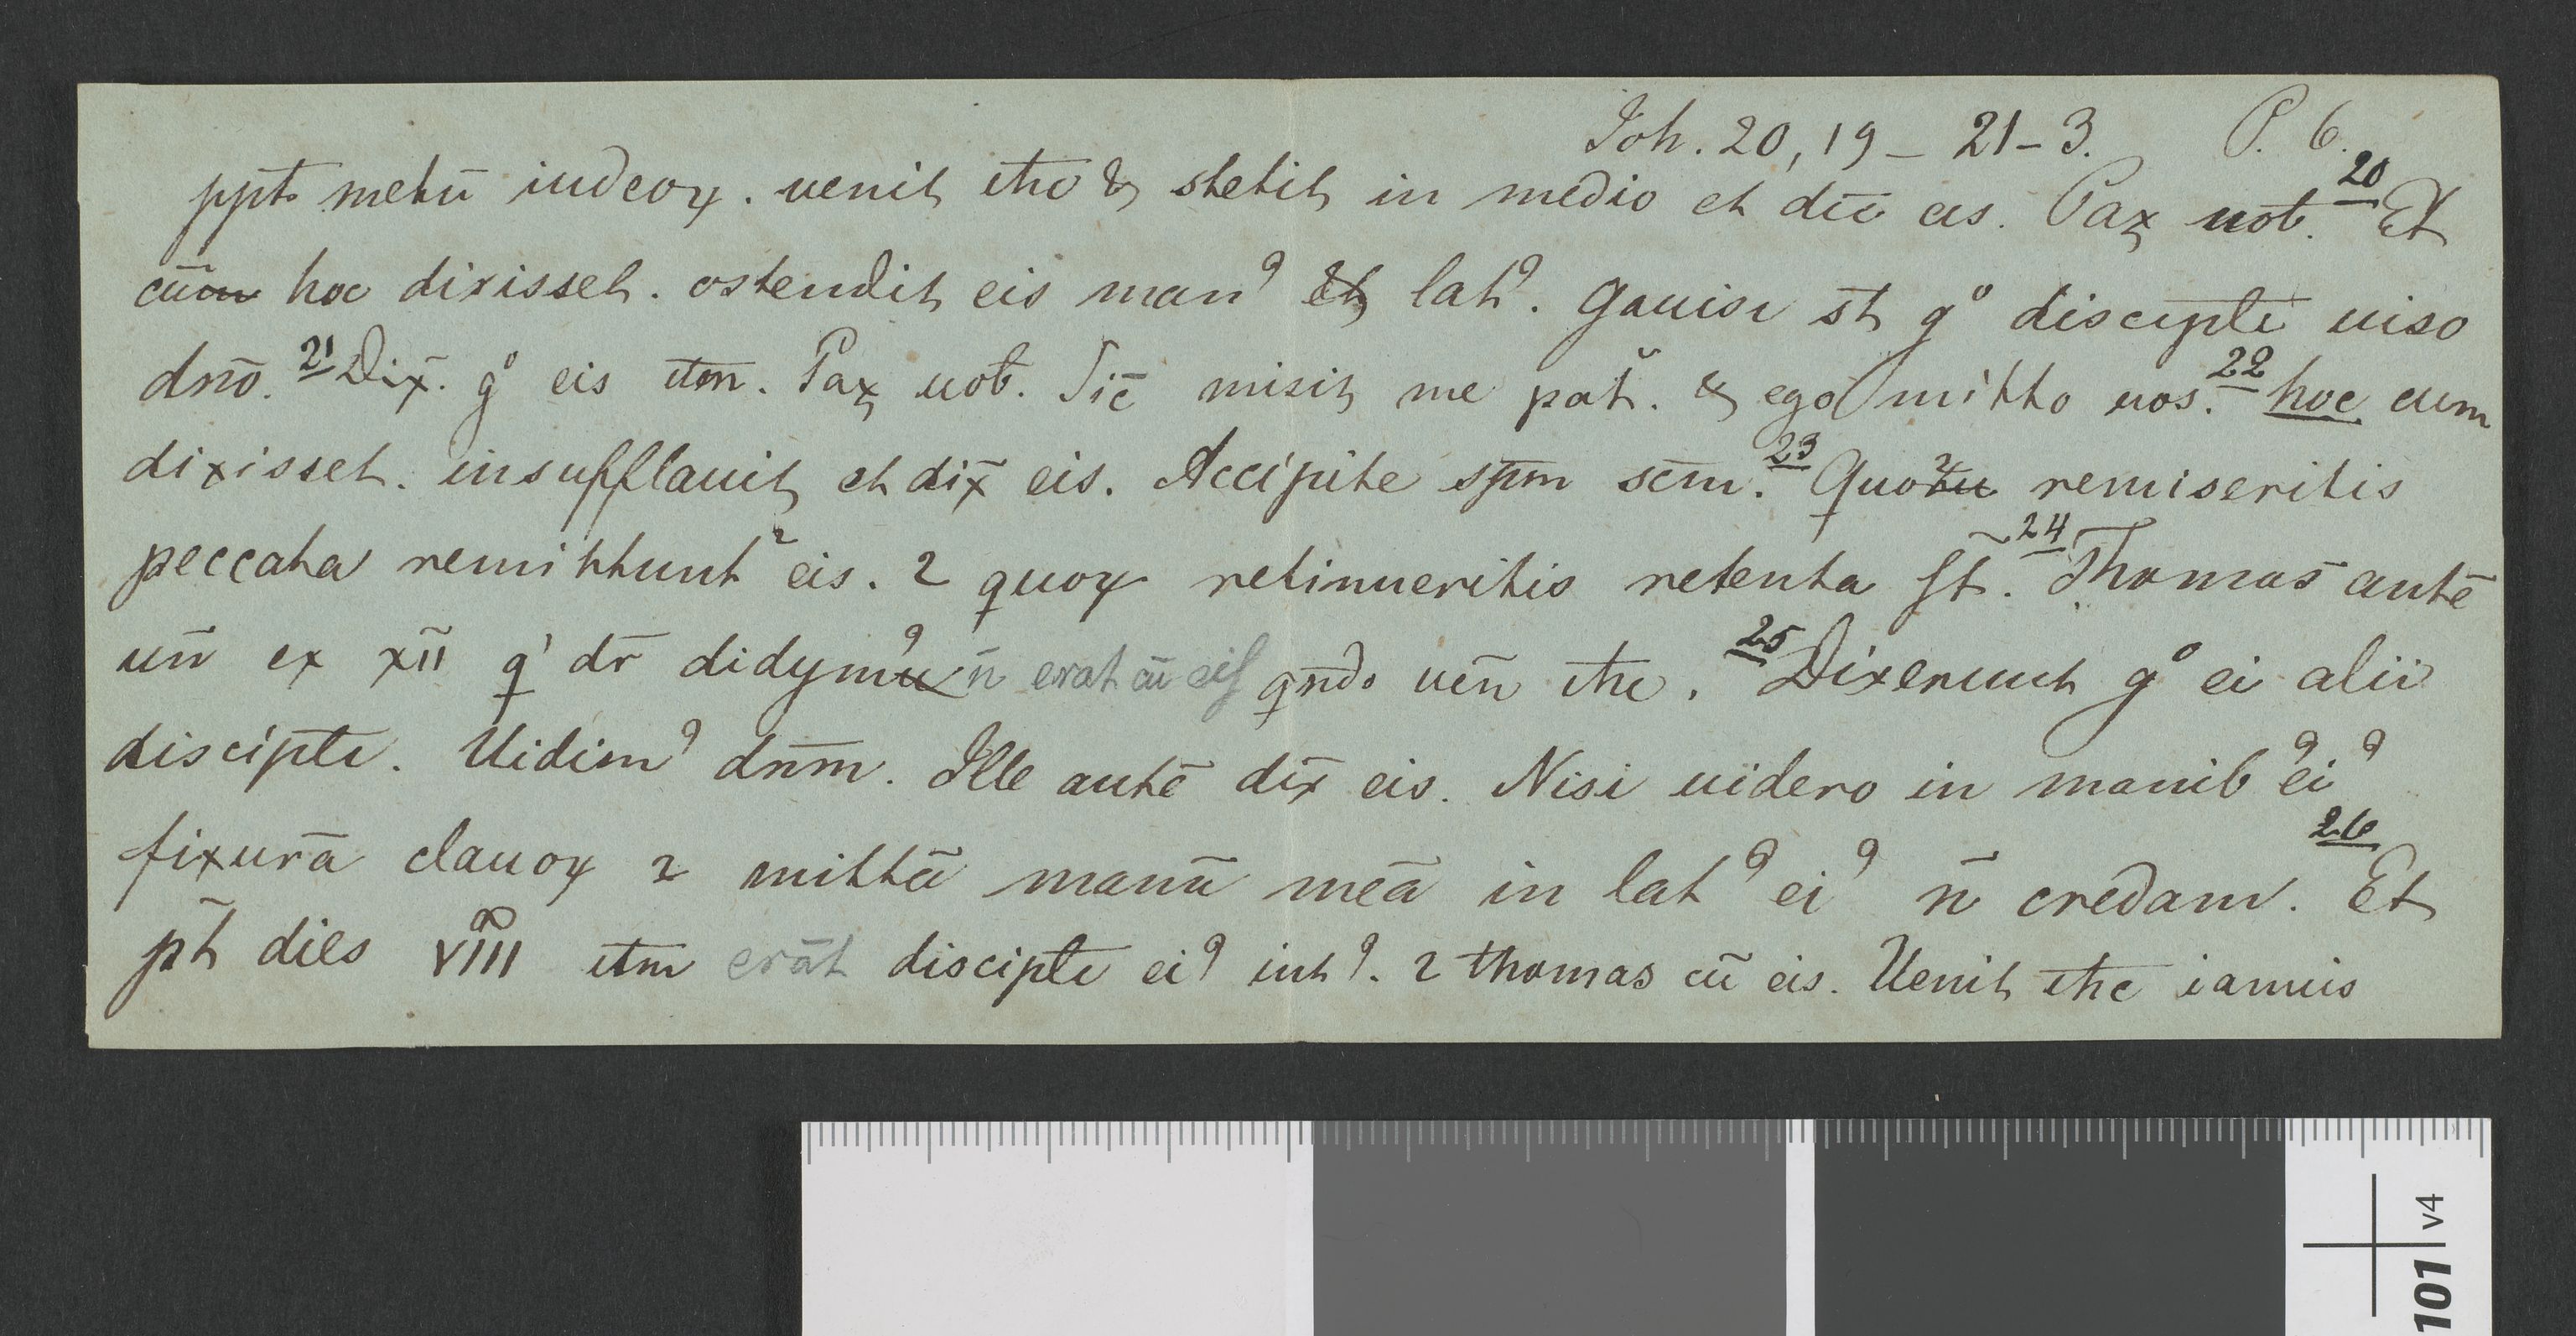 Joh. 20, 19 – 21–3. P. 6.
ppt metū iudeoꝝ. uenit ihc & stetit in medio et dic̄ eis. Pax uob̄. 20 Et
cūm hoc dixisset. ostendit eis manꝰ et latꝰ. gauisi st̄ gº discipłi uiso
dn̄o. 21 Dix̄. gº eis itm̄. Pax uob̄. Sic̄ misit me pat̄. & ego mitto uos. 22 hoc cum
dixisset. insufflauit et dix̄ eis. Accipite sp̄m sc̄m. 23 Quoꝝ remiseritis
peccata remittunt᷑ eis. ⁊ quoꝝ retinueritis retenta st̄. 24 Thomas autē
un̄ ex xīī qⁱ dr̄ didymꝰ n̄ erat cū eis qn̄do uen̄ ihc. 25 Dixerunt gº ei alii
discipłi. Uidimꝰ dn̄m. Ille autē dix̄ eis. Nisi uidero in manibꝰ eiꝰ
fixurā clauoꝝ ⁊ mittā manū meā in latꝰ eiꝰ n̄ credam. 26 Et
pt̄ dies VIII itm̄ erāt discipłi eiꝰ intꝰ. ⁊ thomas cū eis. Uenit ihc ianuis
101 v4